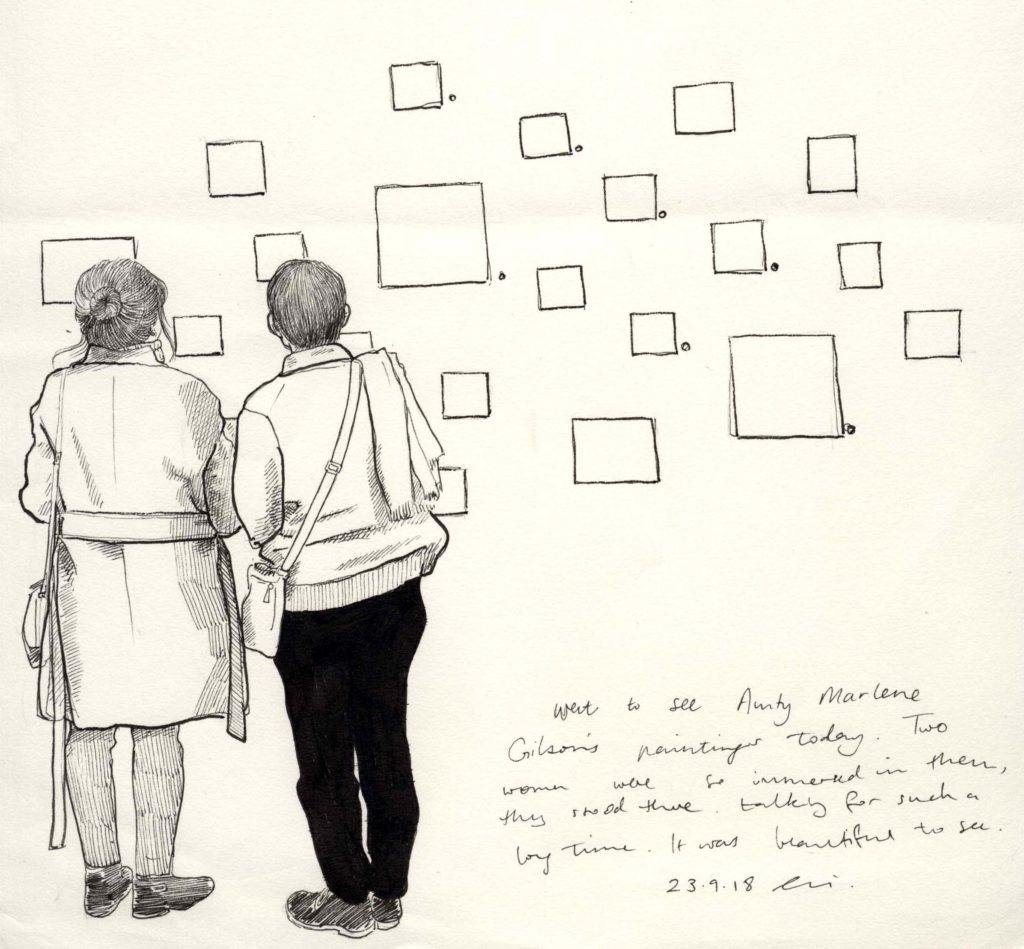 went to see Aunty Marlene
Gilson's paintings today. Two
women were so immersed in them,
they stood there. talking for such a
long time. It was beautiful to see.
23.9.18